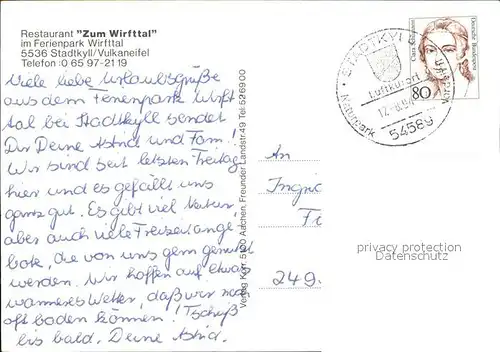 Restaurant "Zum Wirfttal"
im Ferienpark Wirfttal
5536 Stadtkyll/Vulkaneifel
Telefon: 0 65 97-21 19
Viele liebe Urlaubsgrüße
aus dem Ferienpark Wirft
tal bei Stadtkyll sendet
Dir Deine Astrid und Fam.!
Wir sind seit letzten Freitag
hier und es gefällt uns
ganz gut. Es gibt viel Natur,
aber auch viele Freizeitange-
bote, die von uns gern genutzt
werden. Wir hoffen auf etwas
warmeres Wetter, daß wir noch
oft baden können! Tschüß
bis bald. Deine Astrid.
Verlag Korr, 5100 Aachen, Freunder Landstr. 49 Tel. 526900
STADTKYLL
Luftkurort
54589
Clara Schumann
Deutsche Bundespost
80
An
Ingri
249
privacy protection
Datenschutz